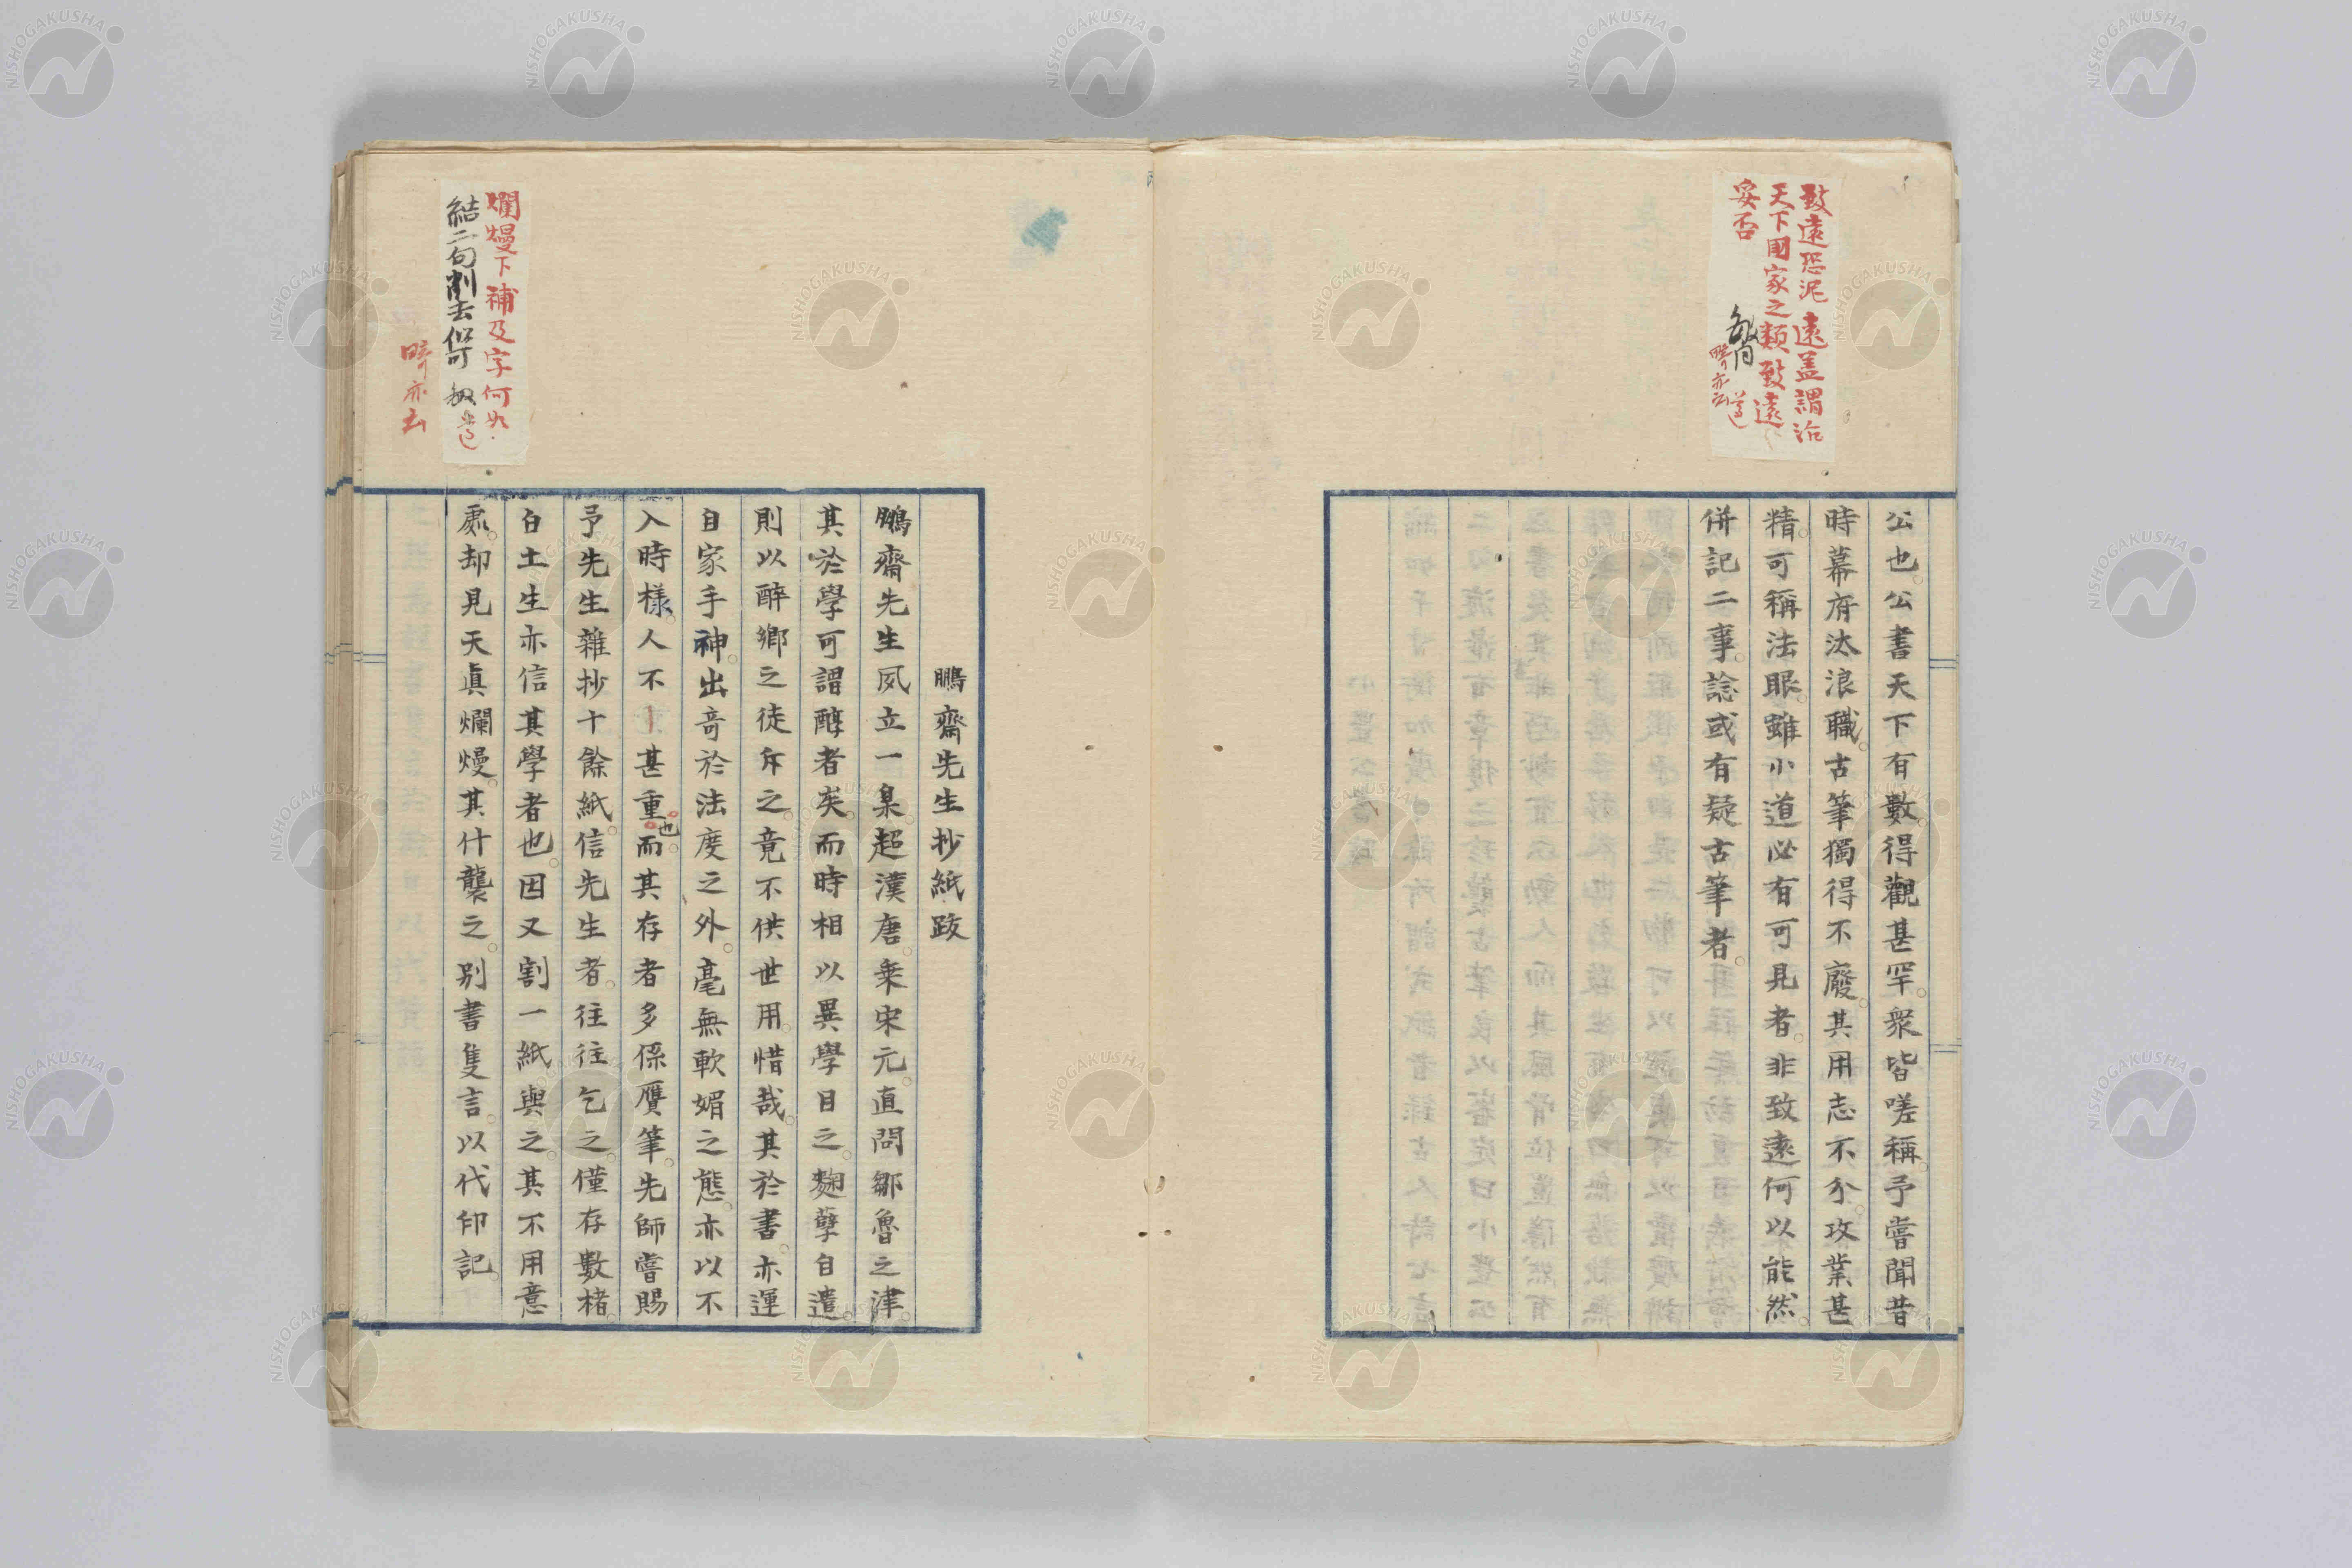 致遠恐泥　遠蓋謂治
天下國家之類致遠
妥否
公也公書天下有數得觀甚罕衆皆嗟稱予嘗聞昔
時幕府汰浪職古筆獨得不廢其用志不分攻業甚
精可稱法眼雖小道必有可見者非致遠何以能然
併記二事諗或有疑古筆者
鵬齋先生抄紙跋
鵬齋先生夙立一臬超漢唐乘宋元直問鄒魯之津
其於學可謂醇者矣而時相以異學目之麴孽自遣
則以醉鄉之徒斥之竟不供世用惜哉其於書亦運
自家手神出奇於法度之外毫無軟媚之態亦以不
入時樣人不甚重也而其存者多係贋筆先師嘗賜
予先生雜抄十餘紙信先生者往往乞之僅存數楮
白土生亦信其學者也因又割一紙與之其不用意
處却見天眞爛熳其什襲之別書隻言以代印記
爛熳下補及字何如
結二句削去似可
畸亦云
NISHOGAKUSHA